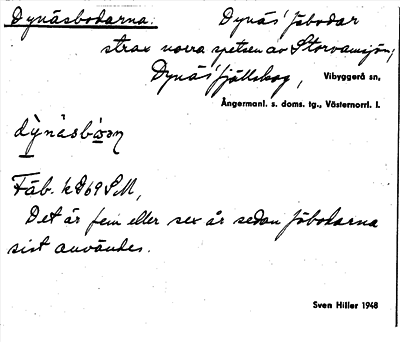 Dynäsbodarna. Dynäs' fäbodar
strax norra spetsen av Storvamsjön,
Dynäs' fjällskog, Vibyggerå sn,
Ångermanl. s. doms. tg., Västernorrl. l.
dỳnäsbóɷn
Fäb. k D69 S.M,
Det är fem eller sex år sedan fäbodarna
sist användes.
Sven Hiller 1948